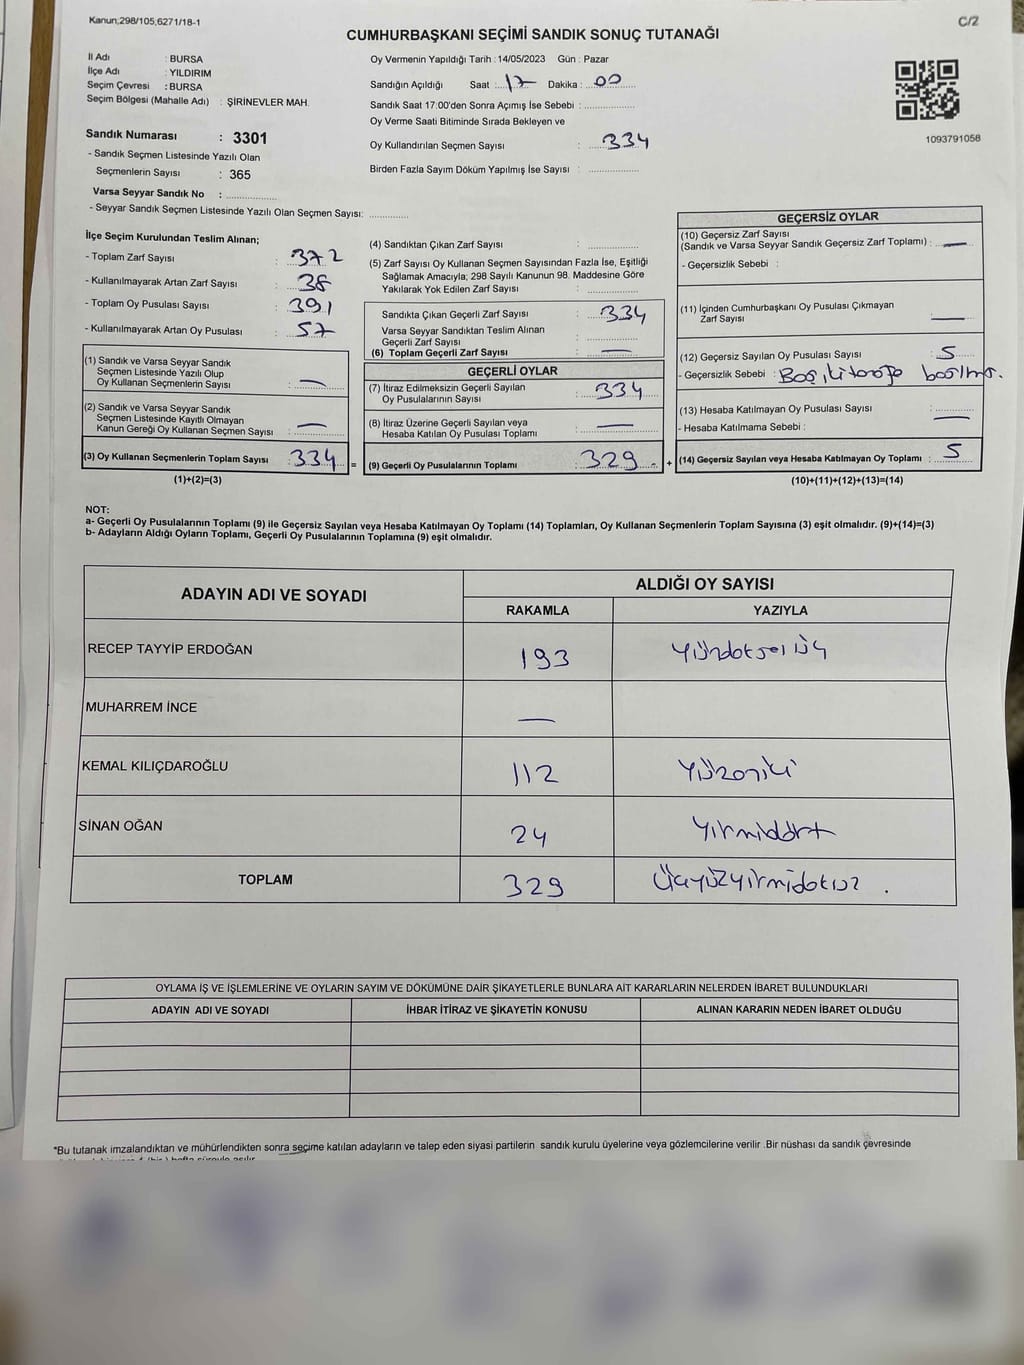 Kanun;298/105,6271/18-1
C/2
CUMHURBAŞKANI SEÇİMİ SANDIK SONUÇ TUTANAĞI
İl Adı : BURSA
İlçe Adı : YILDIRIM
Seçim Çevresi : BURSA
Seçim Bölgesi (Mahalle Adı) : ŞİRİNEVLER MAH.
Sandık Numarası : 3301
- Sandık Seçmen Listesinde Yazılı Olan
Seçmenlerin Sayısı : 365
Varsa Seyyar Sandık No :
- Seyyar Sandık Seçmen Listesinde Yazılı Olan Seçmen Sayısı:
Oy Vermenin Yapıldığı Tarih : 14/05/2023 Gün : Pazar
Sandığın Açıldığı Saat : 17 Dakika : 00
Sandık Saat 17:00'den Sonra Açımış İse Sebebi :
Oy Verme Saati Bitiminde Sırada Bekleyen ve
Oy Kullandırılan Seçmen Sayısı : 334
Birden Fazla Sayım Döküm Yapılmış İse Sayısı :
1093791058
İlçe Seçim Kurulundan Teslim Alınan;
- Toplam Zarf Sayısı : 372
- Kullanılmayarak Artan Zarf Sayısı : 38
- Toplam Oy Pusulası Sayısı : 391
- Kullanılmayarak Artan Oy Pusulası : 57
(1) Sandık ve Varsa Seyyar Sandık
Seçmen Listesinde Yazılı Olup
Oy Kullanan Seçmenlerin Sayısı : —
(2) Sandık ve Varsa Seyyar Sandık
Seçmen Listesinde Kayıtlı Olmayan
Kanun Gereği Oy Kullanan Seçmen Sayısı : —
(3) Oy Kullanan Seçmenlerin Toplam Sayısı : 334 =
(1)+(2)=(3)
(4) Sandıktan Çıkan Zarf Sayısı :
(5) Zarf Sayısı Oy Kullanan Seçmen Sayısından Fazla İse, Eşitliği
Sağlamak Amacıyla; 298 Sayılı Kanunun 98. Maddesine Göre
Yakılarak Yok Edilen Zarf Sayısı :
Sandıkta Çıkan Geçerli Zarf Sayısı : 334
Varsa Seyyar Sandıktan Teslim Alınan
Geçerli Zarf Sayısı :
(6) Toplam Geçerli Zarf Sayısı : —
GEÇERLİ OYLAR
(7) İtiraz Edilmeksizin Geçerli Sayılan
Oy Pusulalarının Sayısı : 334
(8) İtiraz Üzerine Geçerli Sayılan veya
Hesaba Katılan Oy Pusulası Toplamı : —
(9) Geçerli Oy Pusulalarının Toplamı : 329 +
GEÇERSİZ OYLAR
(10) Geçersiz Zarf Sayısı
(Sandık ve Varsa Seyyar Sandık Geçersiz Zarf Toplamı) : —
- Geçersizlik Sebebi :
(11) İçinden Cumhurbaşkanı Oy Pusulası Çıkmayan
Zarf Sayısı —
(12) Geçersiz Sayılan Oy Pusulası Sayısı : 5
- Geçersizlik Sebebi : Boş, iki tarafa basılmış.
(13) Hesaba Katılmayan Oy Pusulası Sayısı : —
- Hesaba Katılmama Sebebi :
(14) Geçersiz Sayılan veya Hesaba Katılmayan Oy Toplamı : 5
(10)+(11)+(12)+(13)=(14)
NOT:
a- Geçerli Oy Pusulalarının Toplamı (9) ile Geçersiz Sayılan veya Hesaba Katılmayan Oy Toplamı (14) Toplamları, Oy Kullanan Seçmenlerin Toplam Sayısına (3) eşit olmalıdır. (9)+(14)=(3)
b- Adayların Aldığı Oyların Toplamı, Geçerli Oy Pusulalarının Toplamına (9) eşit olmalıdır.
ADAYIN ADI VE SOYADI
ALDIĞI OY SAYISI
RAKAMLA YAZIYLA
RECEP TAYYİP ERDOĞAN 193
MUHARREM İNCE —
KEMAL KILIÇDAROĞLU 112 Yüzoniki
SİNAN OĞAN 24 Yirmidört
TOPLAM 329 Üçyüzyirmidokuz .
OYLAMA İŞ VE İŞLEMLERİNE VE OYLARIN SAYIM VE DÖKÜMÜNE DAİR ŞİKAYETLERLE BUNLARA AİT KARARLARIN NELERDEN İBARET BULUNDUKLARI
ADAYIN ADI VE SOYADI İHBAR İTİRAZ VE ŞİKAYETİN KONUSU ALINAN KARARIN NEDEN İBARET OLDUĞU
*Bu tutanak imzalandıktan ve mühürlendikten sonra seçime katılan adayların ve talep eden siyasi partilerin sandık kurulu üyelerine veya gözlemcilerine verilir .Bir nüshası da sandık çevresinde